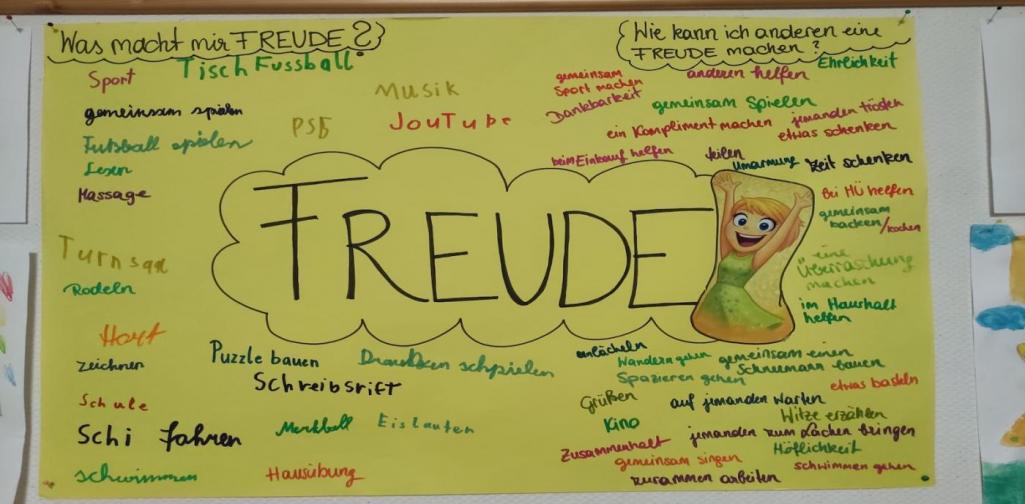 Was macht mir FREUDE?
Tisch Fussball
Sport
gemeinsam spielen
Fußball spielen
Lesen
Massage
Musik
PS5
JouTube
Turnsaal
Rodeln
Hort
zeichnen
Schule
Schi fahren
schwimmen
Puzzle bauen
Draußen schpielen
Schreibsrift
Merkball
Eislaufen
Hausübung
FREUDE
Wie kann ich anderen eine
FREUDE machen?
Ehrlichkeit
gemeinsam
Sport machen
anderen helfen
Dankbarkeit
gemeinsam Spielen
ein Kompliment machen
jemanden trösten
etwas schenken
beim Einkauf helfen
teilen
Umarmung
Zeit schenken
Bei HÜ helfen
gemeinsam
backen/kochen
eine
Überraschung
machen
im Haushalt
helfen
anlächeln
Wandern gehen
gemeinsam einen
Schneemann bauen
Spazieren gehen
etwas basteln
Grüßen
auf jemanden warten
Witze erzählen
Kino
jemanden zum Lachen bringen
Zusammenhalt
Höflichkeit
gemeinsam singen
schwimmen gehen
zusammen arbeiten